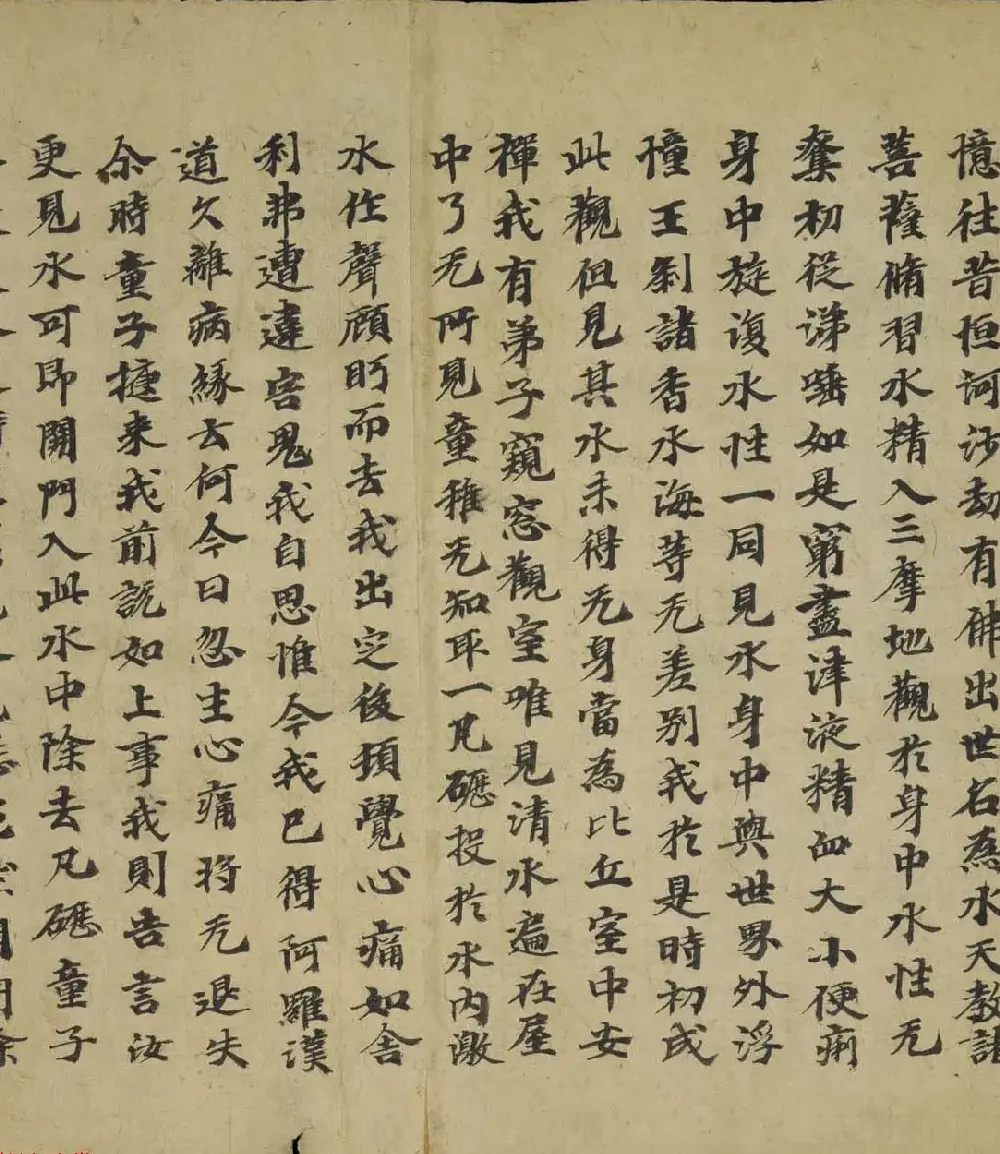 憶往昔恒河沙劫有佛出世名為水天教諸
菩薩脩習水精入三摩地觀於身中水性无
奪初從涕唾如是窮盡津液精血大小便痢
身中旋復水性一同見水身中與世界外浮
憧王剎諸香水海等无差別我於是時初成
此觀但見其水未得无身當為比丘室中安
禪我有弟子窺窓觀室唯見清水遍在屋
中了无所見童稚无知取一瓦礫投於水內激
水作聲顧眄而去我出定後頓覺心痛如舍
利弗遭違害鬼我自思惟今我已得阿羅漢
道久離病緣云何今日忽生心痛將无退失
尒時童子捷來我前說如上事我則告言汝
更見水可即開門入此水中除去瓦礫童子